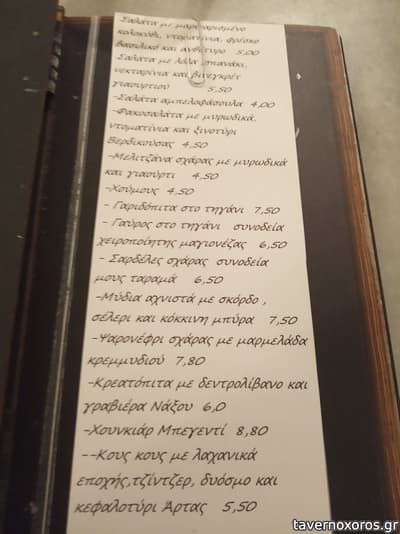 Σαλάτα με μαριναρισμένο
κολοκύθι, ντοματίνια, φρέσκο
βασιλικό και ανθότυρο 5,00
Σαλάτα με λόλα, σπανάκι,
νεκταρίνια και βινεγκρέτ
γιαουρτιού 5,50
-Σαλάτα αμπελοφάσουλα 4,00
-Φακοσαλάτα με μυρωδικά,
ντοματίνια και ξινοτύρι
Βερδικούσας 4,50
-Μελιτζάνα σχάρας με μυρωδικά
και γιαούρτι 4,50
-Χούμους 4,50
- Γαριδόπιτα στο τηγάνι 7,50
- Γαύρος στο τηγάνι συνοδεία
χειροποίητης μαγιονέζας 6,50
- Σαρδέλες σχάρας συνοδεία
μους ταραμά 6,50
-Μύδια αχνιστά με σκόρδο ,
σέλερι και κόκκινη μπύρα 7,50
-Ψαρονέφρι σχάρας με μαρμελάδα
κρεμμυδιού 7,80
-Κρεατόπιτα με δεντρολίβανο και
γραβιέρα Νάξου 6,0
-Χουνκιάρ Μπεγεντί 8,80
--Κους κους με λαχανικά
εποχής,τζίντζερ, δυόσμο και
κεφαλοτύρι Άρτας 5,50
tavernoxoros.gr